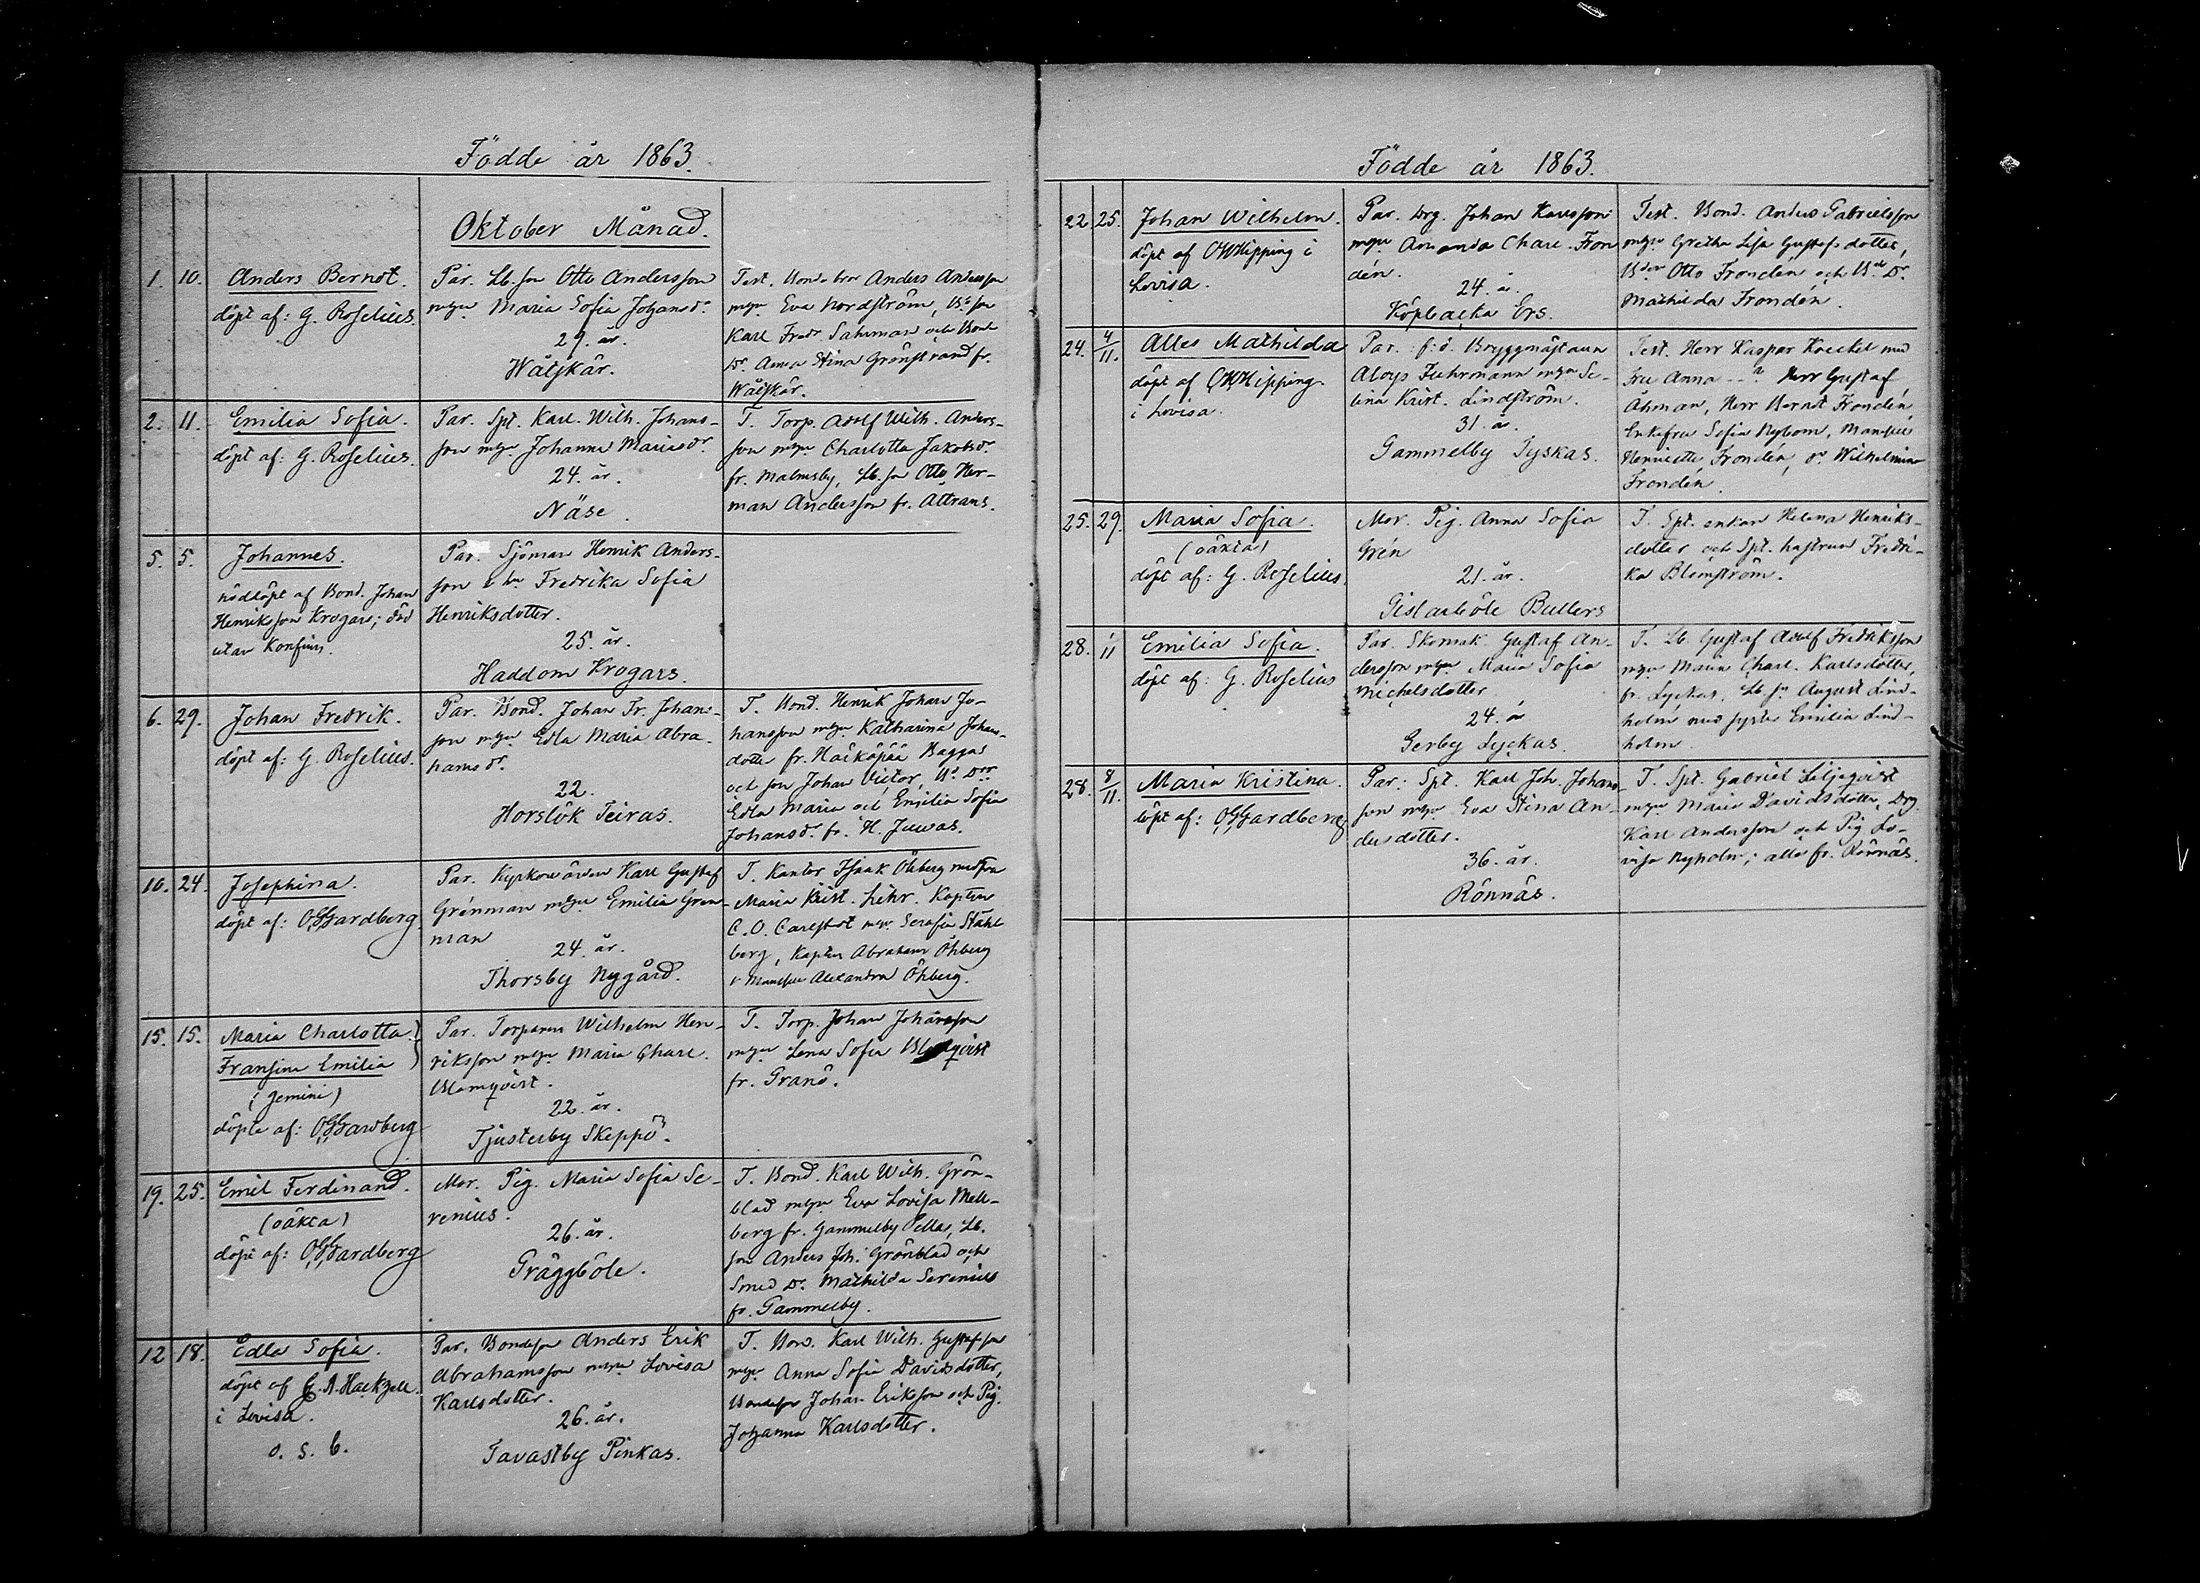 Födde år 1863.
Oktober Månad.
1. 10. Anders Bernt.
döpt af: G. Roselius.
Par. Lb. son Otto Andersson
m. hu Maria Sofia Johansdr
29. år.
Wåtskär.
Test. Bonde bror Anders Andersson
m. hu Eva Nordström, Bdeson
Karl Fredr Sahrman och Bonde
Dr. Anna Stina Grönstrand fr.
Wåtskär.
2. 11. Emilia Sofia.
döpt af: G. Roselius.
Par. Spt. Karl. Wilh. Johans-
son m. hu Johanna Mariasdr
24. år.
Näse.
T. Torp. Adolf Wilh. Anders-
son m. hu Charlotta Jakobsdr
fr. Malmsby, Lb. son Otto Her-
man Andersson fr. Åttrans.
5. 5. Johannes.
nöddöpt af Bond. Johan
Henriksson Krogars; död
utan Konfirm.
Par. Sjöman Henrik Anders-
son o hu Fredrika Sofia
Henriksdotter.
25. år.
Haddom Krogars.
6. 29. Johan Fredrik.
döpt af: G. Roselius.
Par. Bond. Johan Fr. Johans-
son m. hu Edla Maria Abra-
hamsdr.
22.
Horslök Teiras.
T. Bond. Henrik Johan Jo-
hansson m. hu Katharina Johans-
dotter fr. Härkäpää Baggas
och son Johan Victor, Bd Drr
Edla Maria och Emilia Sofia
Johansdr. fr. H. Juwas.
10. 24. Josephina.
döpt af: OGGardberg
Par. Kyrkowärden Karl Gustaf
Grönman m. hu Emilia Grön-
man
24. år.
Thorsby Nygård.
T. Kantor Isaak Öhberg med fru
Maria Krist. Lihr. Kapten
C. O. Carlstedt m. hu Serafia Ståhl
berg, Kapten Abraham Öhberg
o Mamsell Alexandra Öhberg.
15. 15. Maria Charlotta.
Fransina Emilia
(gemini)
döpte af: OGGardberg
Par. Torparen Wilhelm Hen-
riksson m. hu Maria Charl.
Blomqvist.
22. år.
Tjusterby Skeppö.
T. Torp. Johan Johansson
m. hu Lena Sofia Blomqvist
fr. Granö.
19. 25. Emil Ferdinand.
(oäkta)
döpt af: OGGardberg
Mor. Pig. Maria Sofia Se-
renius.
26. år.
Gräggböle.
T. Bond. Karl Wilh. Grön-
blad m. hu Eva Lovisa Mell-
berg fr. Gammelby Pellas, Lb.
son Anders Joh. Grönblad och
Smed Dr. Mathilda Serenius
fr. Gammelby.
12 18. Edla Sofia.
döpt af G. A. Hackzell
i Lovisa.
o. s. b.
Par. Bondeson Anders Erik
Abrahamsson m. hu Lovisa
Karlsdotter.
26. år.
Tavastby Pinkas.
T. Bond. Karl Wilh. Gustafsson
m. hu Anna Sofia Davidsdotter,
Bondeson Johan Eriksson och Pig.
Johanna Karlsdotter.
Födde år 1863.
22. 25. Johan Wilhelm.
döpt af OWHipping i
Lovisa.
Par. Drg. Johan Karlsson
m. hu Amanda Charl. Fron
dén.
24. år.
Köpbacka Ers.
Test. Bond. Anders Gabrielsson
m. hu Gretha Lisa Gustafsdotter,
Bdson Otto Frondén och Bd Dr.
Mathilda Frondén.
24. 4/11. Alles Mathilda
döpt af OWHipping
i Lovisa.
Par. f. d. Bryggmästaren
Aloys Fuhrmann m. hu Se-
lina Krist. Lindström.
31. år.
Gammelby Tyskas.
Test. Herr Kaspar Kreckel med
fru Anna --? Herr Gustaf
Åhman, Herr Berndt Frondén,
Enkefru Sofia Nybom, Mamsell
Henriette Frondén, dr Wilhelmina
Frondén.
25. 29. Maria Sofia.
(oäkta)
döpt af: G. Roselius.
Mor. Pig. Anna Sofia
Grén
21. år.
Gislarböle Bullers
T. Spt. enkan Helena Henriks-
dotter och Spt. hustrun Fredri-
ka Blomström.
28. 1/11 Emilia Sofia.
döpt af: G. Roselius
Par. Skomak. Gustaf An-
dersson m. hu Maria Sofia
Michelsdotter
24. år
Gerby Lyckas.
T. Lb. Gustaf Adolf Fredriksson
m. hu Maria Charl. Karlsdotter,
fr. Lyckas, Lb. sn August Lind-
holm med syster Emilia Lind-
holm.
28. 8/11. Maria Kristina.
döpt af: OGGardberg
Par. Spt. Karl Joh. Johans-
son m. hu Eva Stina An-
dersdotter.
36. år.
Rönnäs.
T. Spt. Gabriel Liljeqvist
m. hu Maria Davidsdotter, Drg.
Karl Andersson och Pig. Lo-
visa Nyholm; alla fr. Rönnäs.